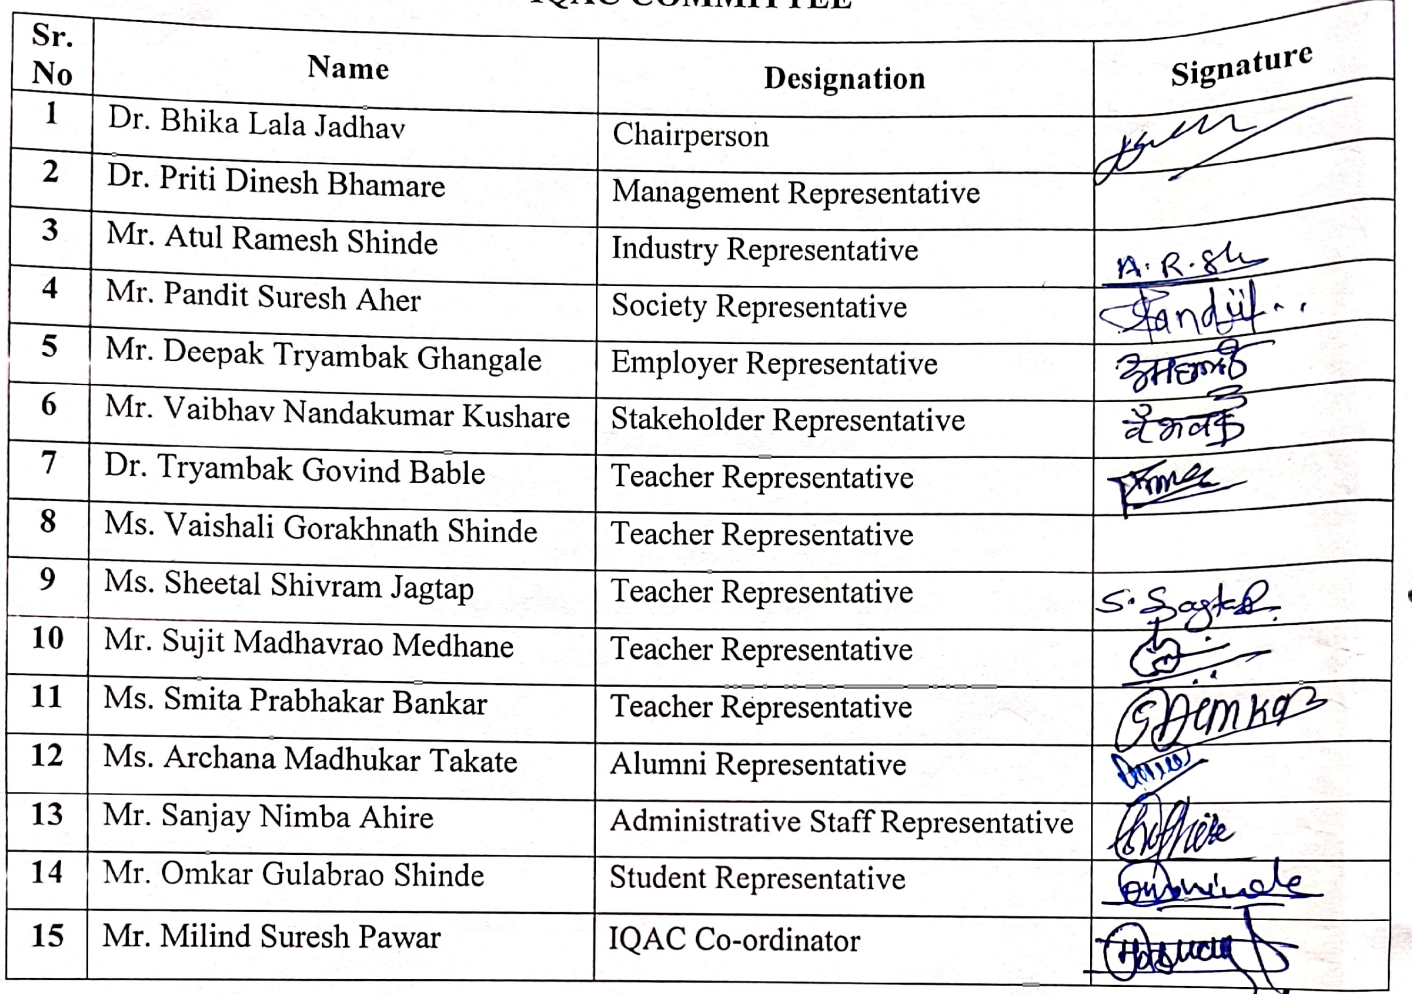 IQAC COMMITTEE
Sr. No Name Designation Signature
1 Dr. Bhika Lala Jadhav Chairperson
2 Dr. Priti Dinesh Bhamare Management Representative
3 Mr. Atul Ramesh Shinde Industry Representative A. R. Sh
4 Mr. Pandit Suresh Aher Society Representative Pandit
5 Mr. Deepak Tryambak Ghangale Employer Representative
6 Mr. Vaibhav Nandakumar Kushare Stakeholder Representative
7 Dr. Tryambak Govind Bable Teacher Representative
8 Ms. Vaishali Gorakhnath Shinde Teacher Representative
9 Ms. Sheetal Shivram Jagtap Teacher Representative S. Jagtap
10 Mr. Sujit Madhavrao Medhane Teacher Representative
11 Ms. Smita Prabhakar Bankar Teacher Representative
12 Ms. Archana Madhukar Takate Alumni Representative
13 Mr. Sanjay Nimba Ahire Administrative Staff Representative
14 Mr. Omkar Gulabrao Shinde Student Representative
15 Mr. Milind Suresh Pawar IQAC Co-ordinator